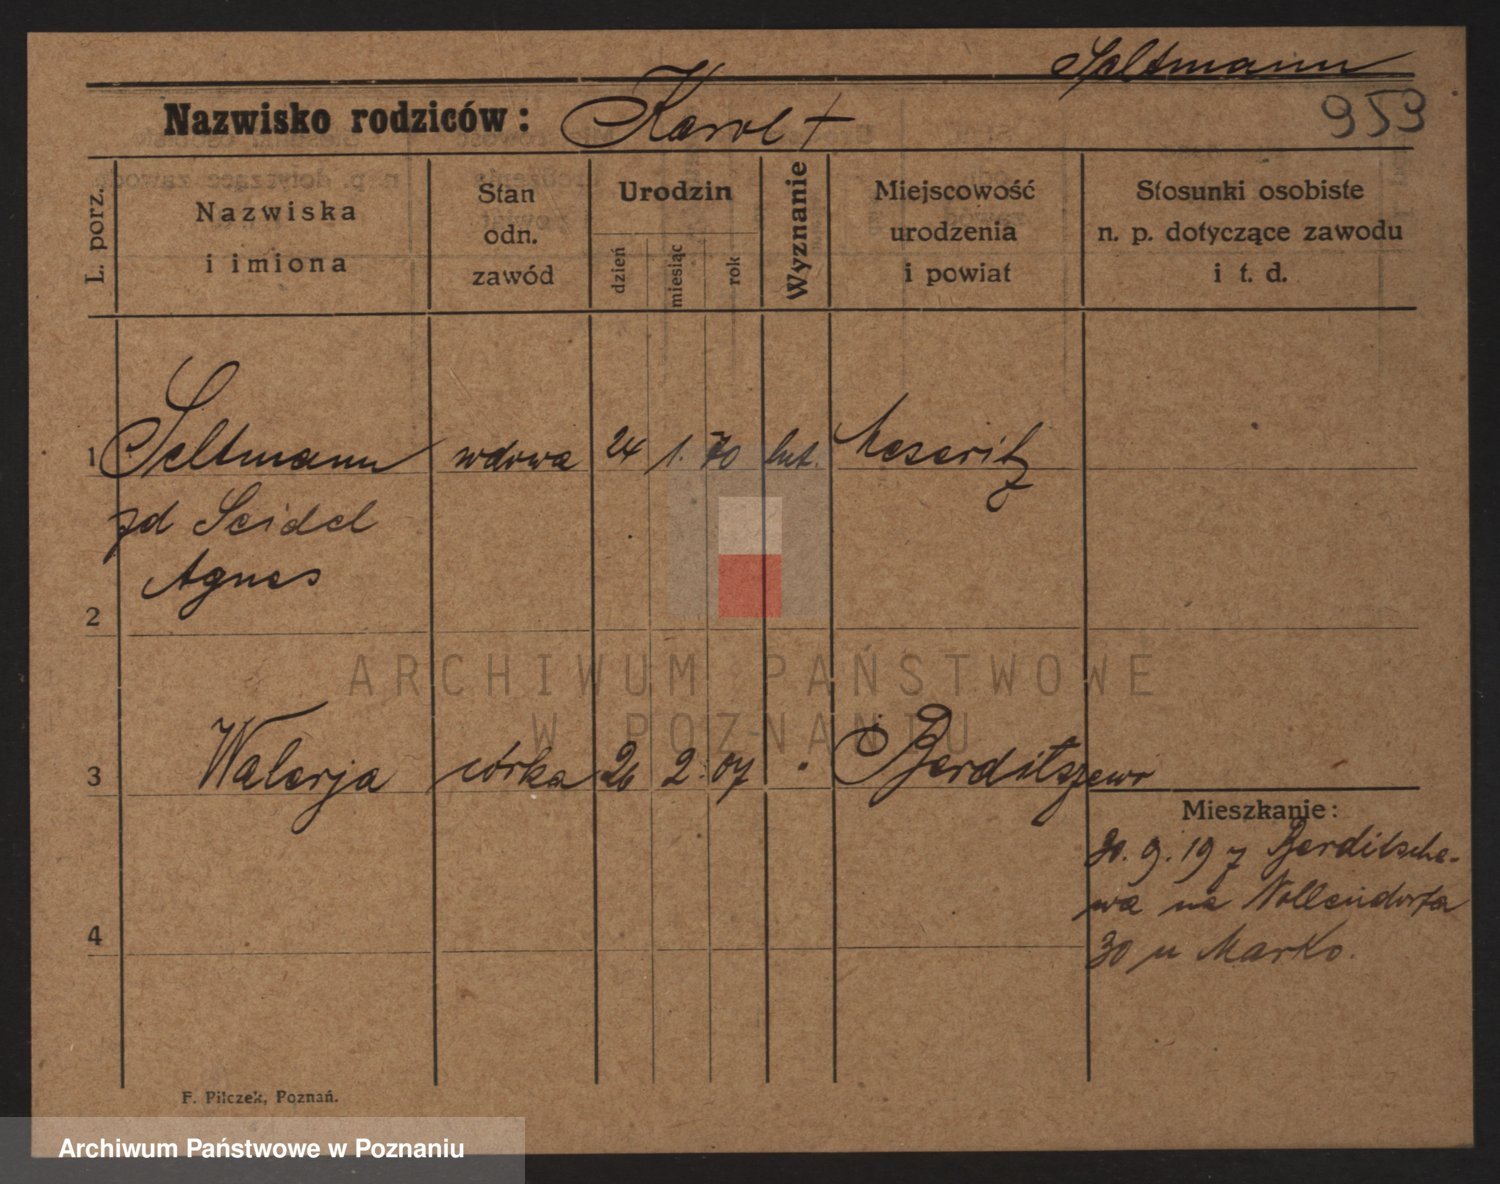 Seltmann
Nazwisko rodziców: Karol +
953
L. porz.
Nazwiska
i imiona
Stan
odn.
zawód
Urodzin
dzień
miesiąc
rok
Wyznanie
Miejscowość
urodzenia
i powiat
Stosunki osobiste
n. p. dotyczące zawodu
i t. d.
1 Seltmann wdowa 24 1. 70 lut. Meseritz
zd Seidel
Agnes
2
3 Walerja córka 26 2. 07 Berditszewo
Mieszkanie:
30. 9. 19 z Berditsche-
wa na Nollendorfa
30 u Marko.
4
F. Pilczek, Poznań.
ARCHIWUM PAŃSTWOWE
W POZNANIU
Archiwum Państwowe w Poznaniu